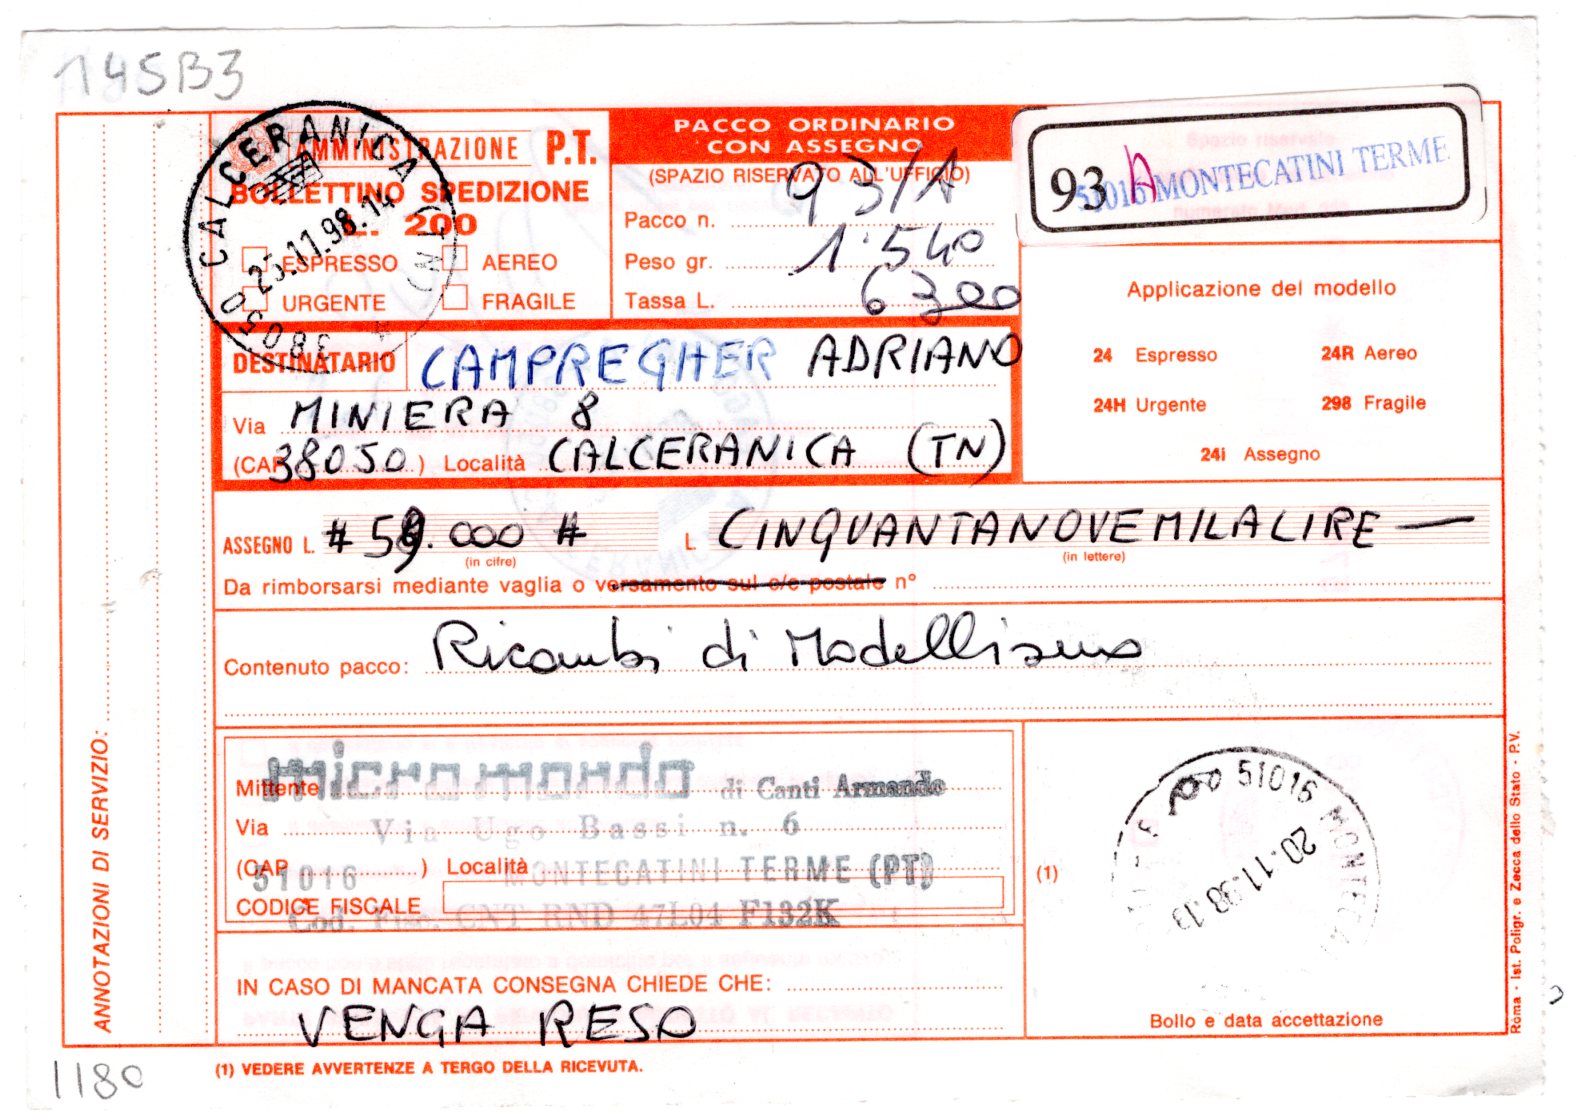 145B3
AMMINISTRAZIONE P.T.
BOLLETTINO SPEDIZIONE
L. 200
ESPRESSO AEREO
URGENTE FRAGILE
38050 CALCERANICA (TN)
23.11.98.14
PACCO ORDINARIO
CON ASSEGNO
(SPAZIO RISERVATO ALL'UFFICIO)
Pacco n. 93/A
Peso gr. 1.540
Tassa L. 6300
93 A
51016 MONTECATINI TERME
Applicazione del modello
24 Espresso 24R Aereo
24H Urgente 298 Fragile
24i Assegno
DESTINATARIO CAMPREGHER ADRIANO
Via MINIERA 8
(CAP 38050) Località CALCERANICA (TN)
ASSEGNO L. # 59.000 # L. CINQUANTANOVEMILALIRE —
(in cifre) (in lettere)
Da rimborsarsi mediante vaglia o versamento sul c/c postale n°
Contenuto pacco: Ricambi di Modellismo
Mittente micro mondo di Canti Armando
Via Via Ugo Bassi n. 6
(CAP 51016) Località MONTECATINI TERME (PT)
CODICE FISCALE
Cod. Fisc. CNT RND 47L04 F132K
(1)
51016 MONTECA
20.11.98.13
Bollo e data accettazione
IN CASO DI MANCATA CONSEGNA CHIEDE CHE:
VENGA RESO
(1) VEDERE AVVERTENZE A TERGO DELLA RICEVUTA.
1180
ANNOTAZIONI DI SERVIZIO:
Roma - Ist. Poligr. e Zecca dello Stato - P.V.